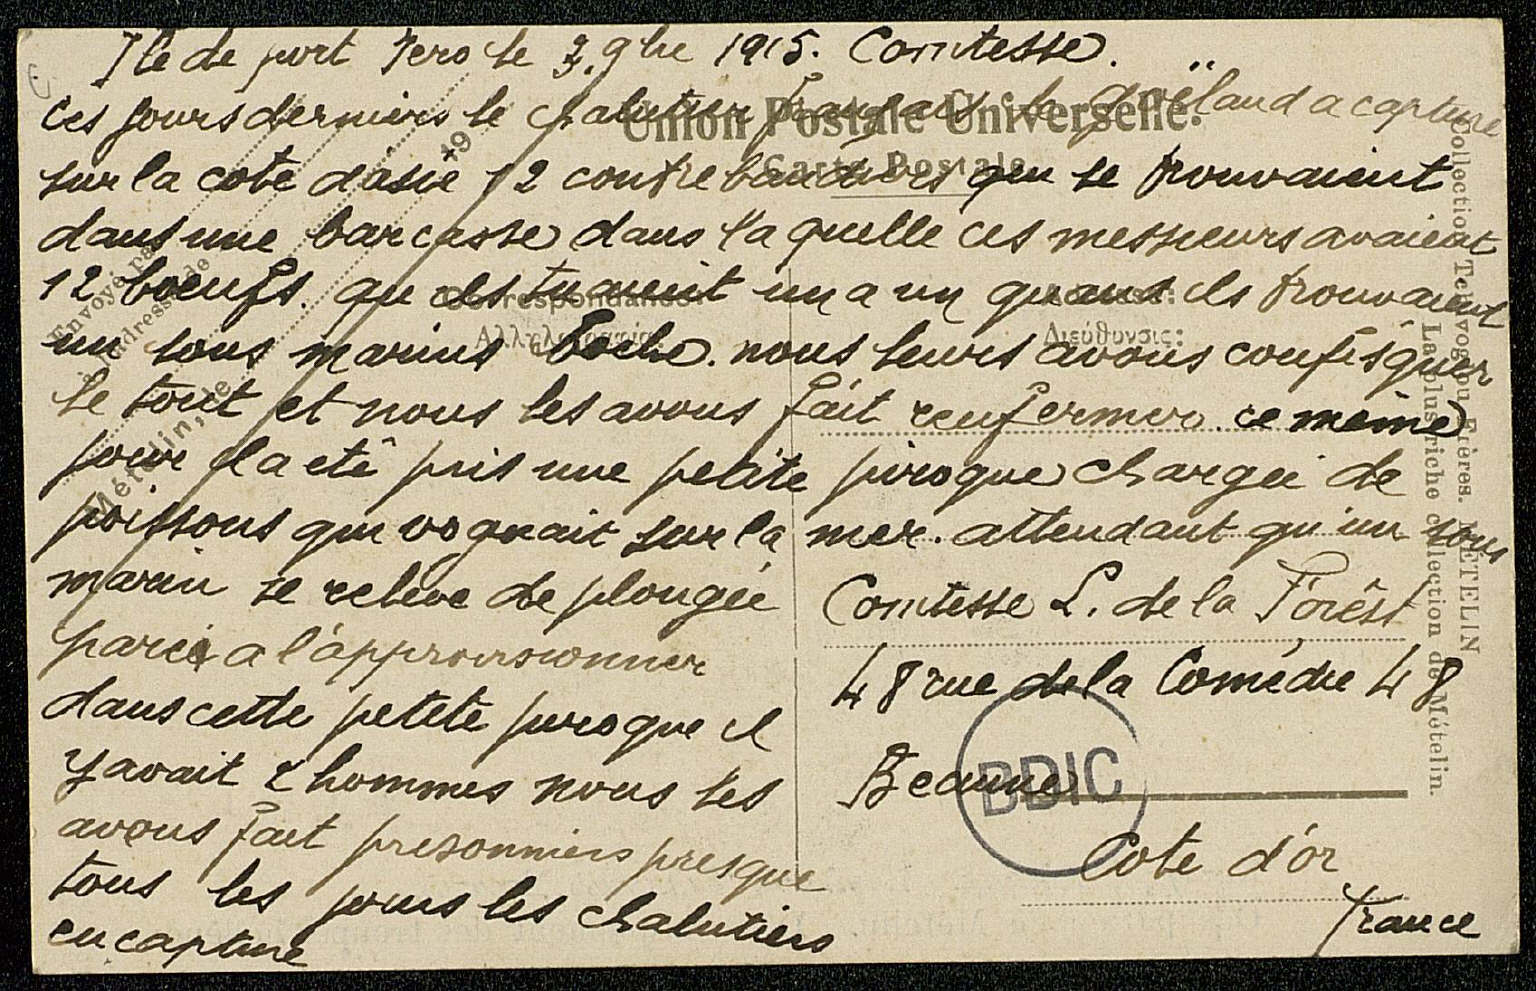 Ile de port Iero le 3. 9bre 1915. Comtesse.
Ces jours derniers le chalutier français le goëland a capturé
sur la cote d'asie 12 contrebandiers qui se trouvaient
dans une barcasse dans la quelle ces messieurs avaient
12 bœufs. qu ils tuaient un a un quand ils trouvaient
un sous marins boche. nous leurs avons confisquer
le tout et nous les avons fait renfermer. ce même
jour il a eté pris une petite pirogue chargée de
poissons qui voguait sur la mer. attendant qu'un sous
marin se releve de plongée
pareil a l'approvisionner
dans cette petite pirogue il
y avait 2 hommes nous les
avons fait prisonniers presque
tous les jours les chalutiers
en capture
Comtesse L. de la Forêst
48 rue de la Comédie 48
Beaune
Cote d'or
France
Union Postale Universelle.
Carte Postale
Correspondance:
Αλληλογραφία:
Adresse:
Διεύθυνσις:
Envoyé par
à l'adresse de
Métélin, le
19
Collection Tchivoglou Frères. MÉTELIN
La plus riche collection de Métélin.
BDIC